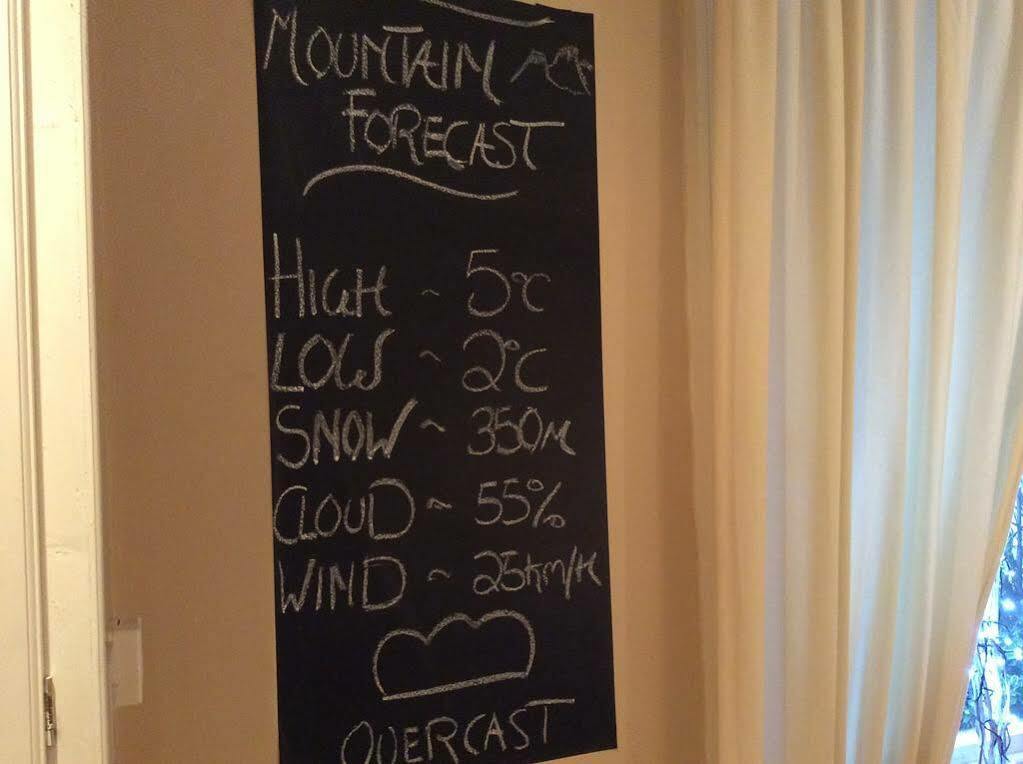 MOUNTAIN
FORECAST
HIGH ~ 5°C
LOW ~ 2°C
SNOW ~ 350M
CLOUD ~ 55%
WIND ~ 25km/H
OVERCAST